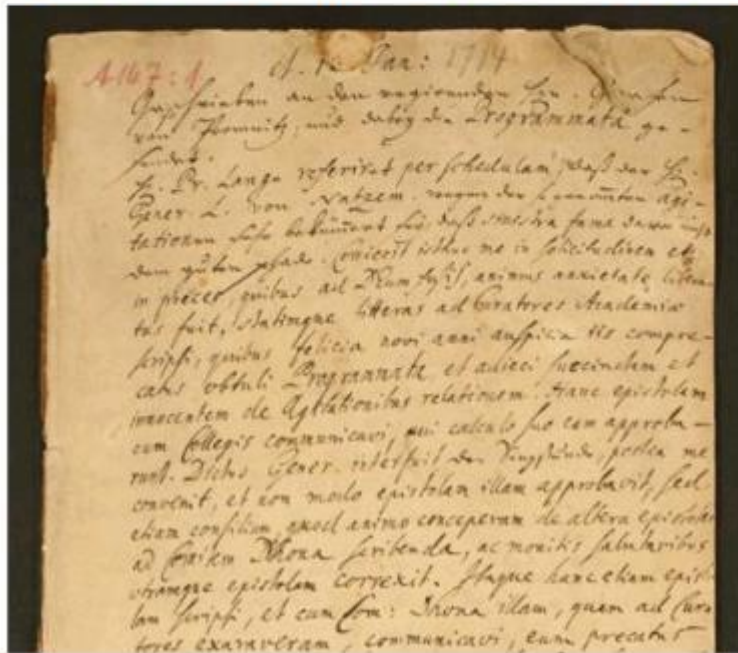 A 167:1
d. 10 Jan: 1714
Geschrieben an den regierenden Hrn. Grafen
von Promnitz, und dabey die Programmata ge-
sendet.
H. Dr. Lange referiret per schedulam, daß der H.
Gener. L. von Natzem. wegen der sogenannten Agi-
tationen sehr bekümmert sey, daß sinistra fama davon
dem guten schade. Coniecit isthuc me in solicitudinem et
in preces, quibus ad Deum fusis, animus anxietate libera-
tus fuit, statimque litteras ad Curatores Academiae
scripsi, quibus felicia novi anni auspicia iis compre-
catus obtuli Programmata et adieci succinctam et
innocentem de Agitationibus relationem. Hanc epistolam
cum Collegis communicavi, qui calculo suo eam approba-
runt. Dictus Gener. interfuit der Singstunde, postea me
convenit, et non modo epistolam illam approbavit, sed
etiam consilium, quod animo conceperam de altera epistola
ad Comitem Dhona scribenda, ac monitis salutaribus
utramque epistolam correxit. Itaque hanc etiam episto-
lam scripsi, et cum Com: Dhona illam, quam ad Cura-
tores exaraveram, communicavi, eum precatus